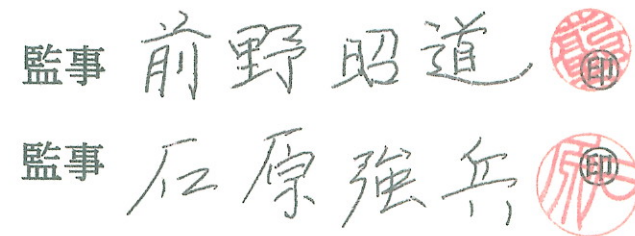 監事 前野昭道 ㊞
監事 石原強兵 ㊞